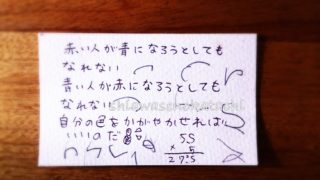 赤い人が青になろうとしても
なれない
青い人が赤になろうとしても
なれない
shiawasehokatachi
自分の色をかがやかせれば
いいのだ
55
× 5
275